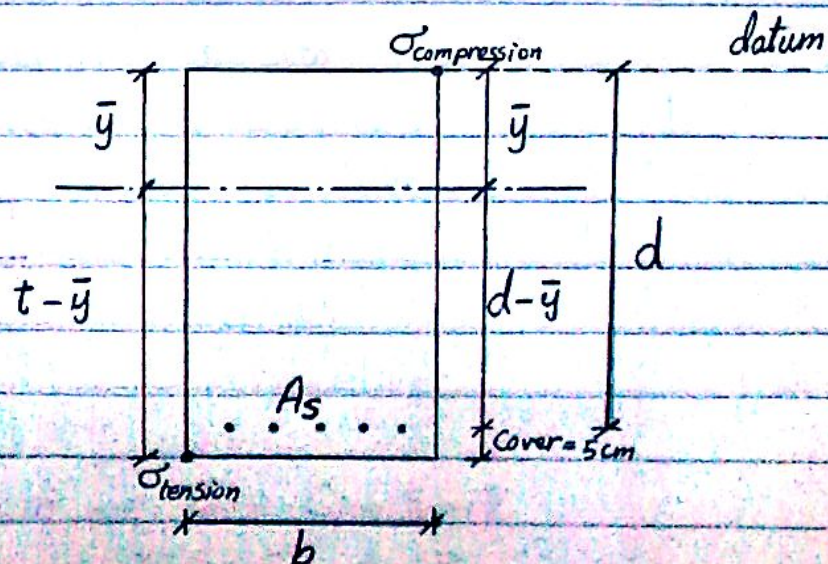 σcompression datum
ȳ ȳ
d
t-ȳ d-ȳ
As
Cover=5cm
σtension
b